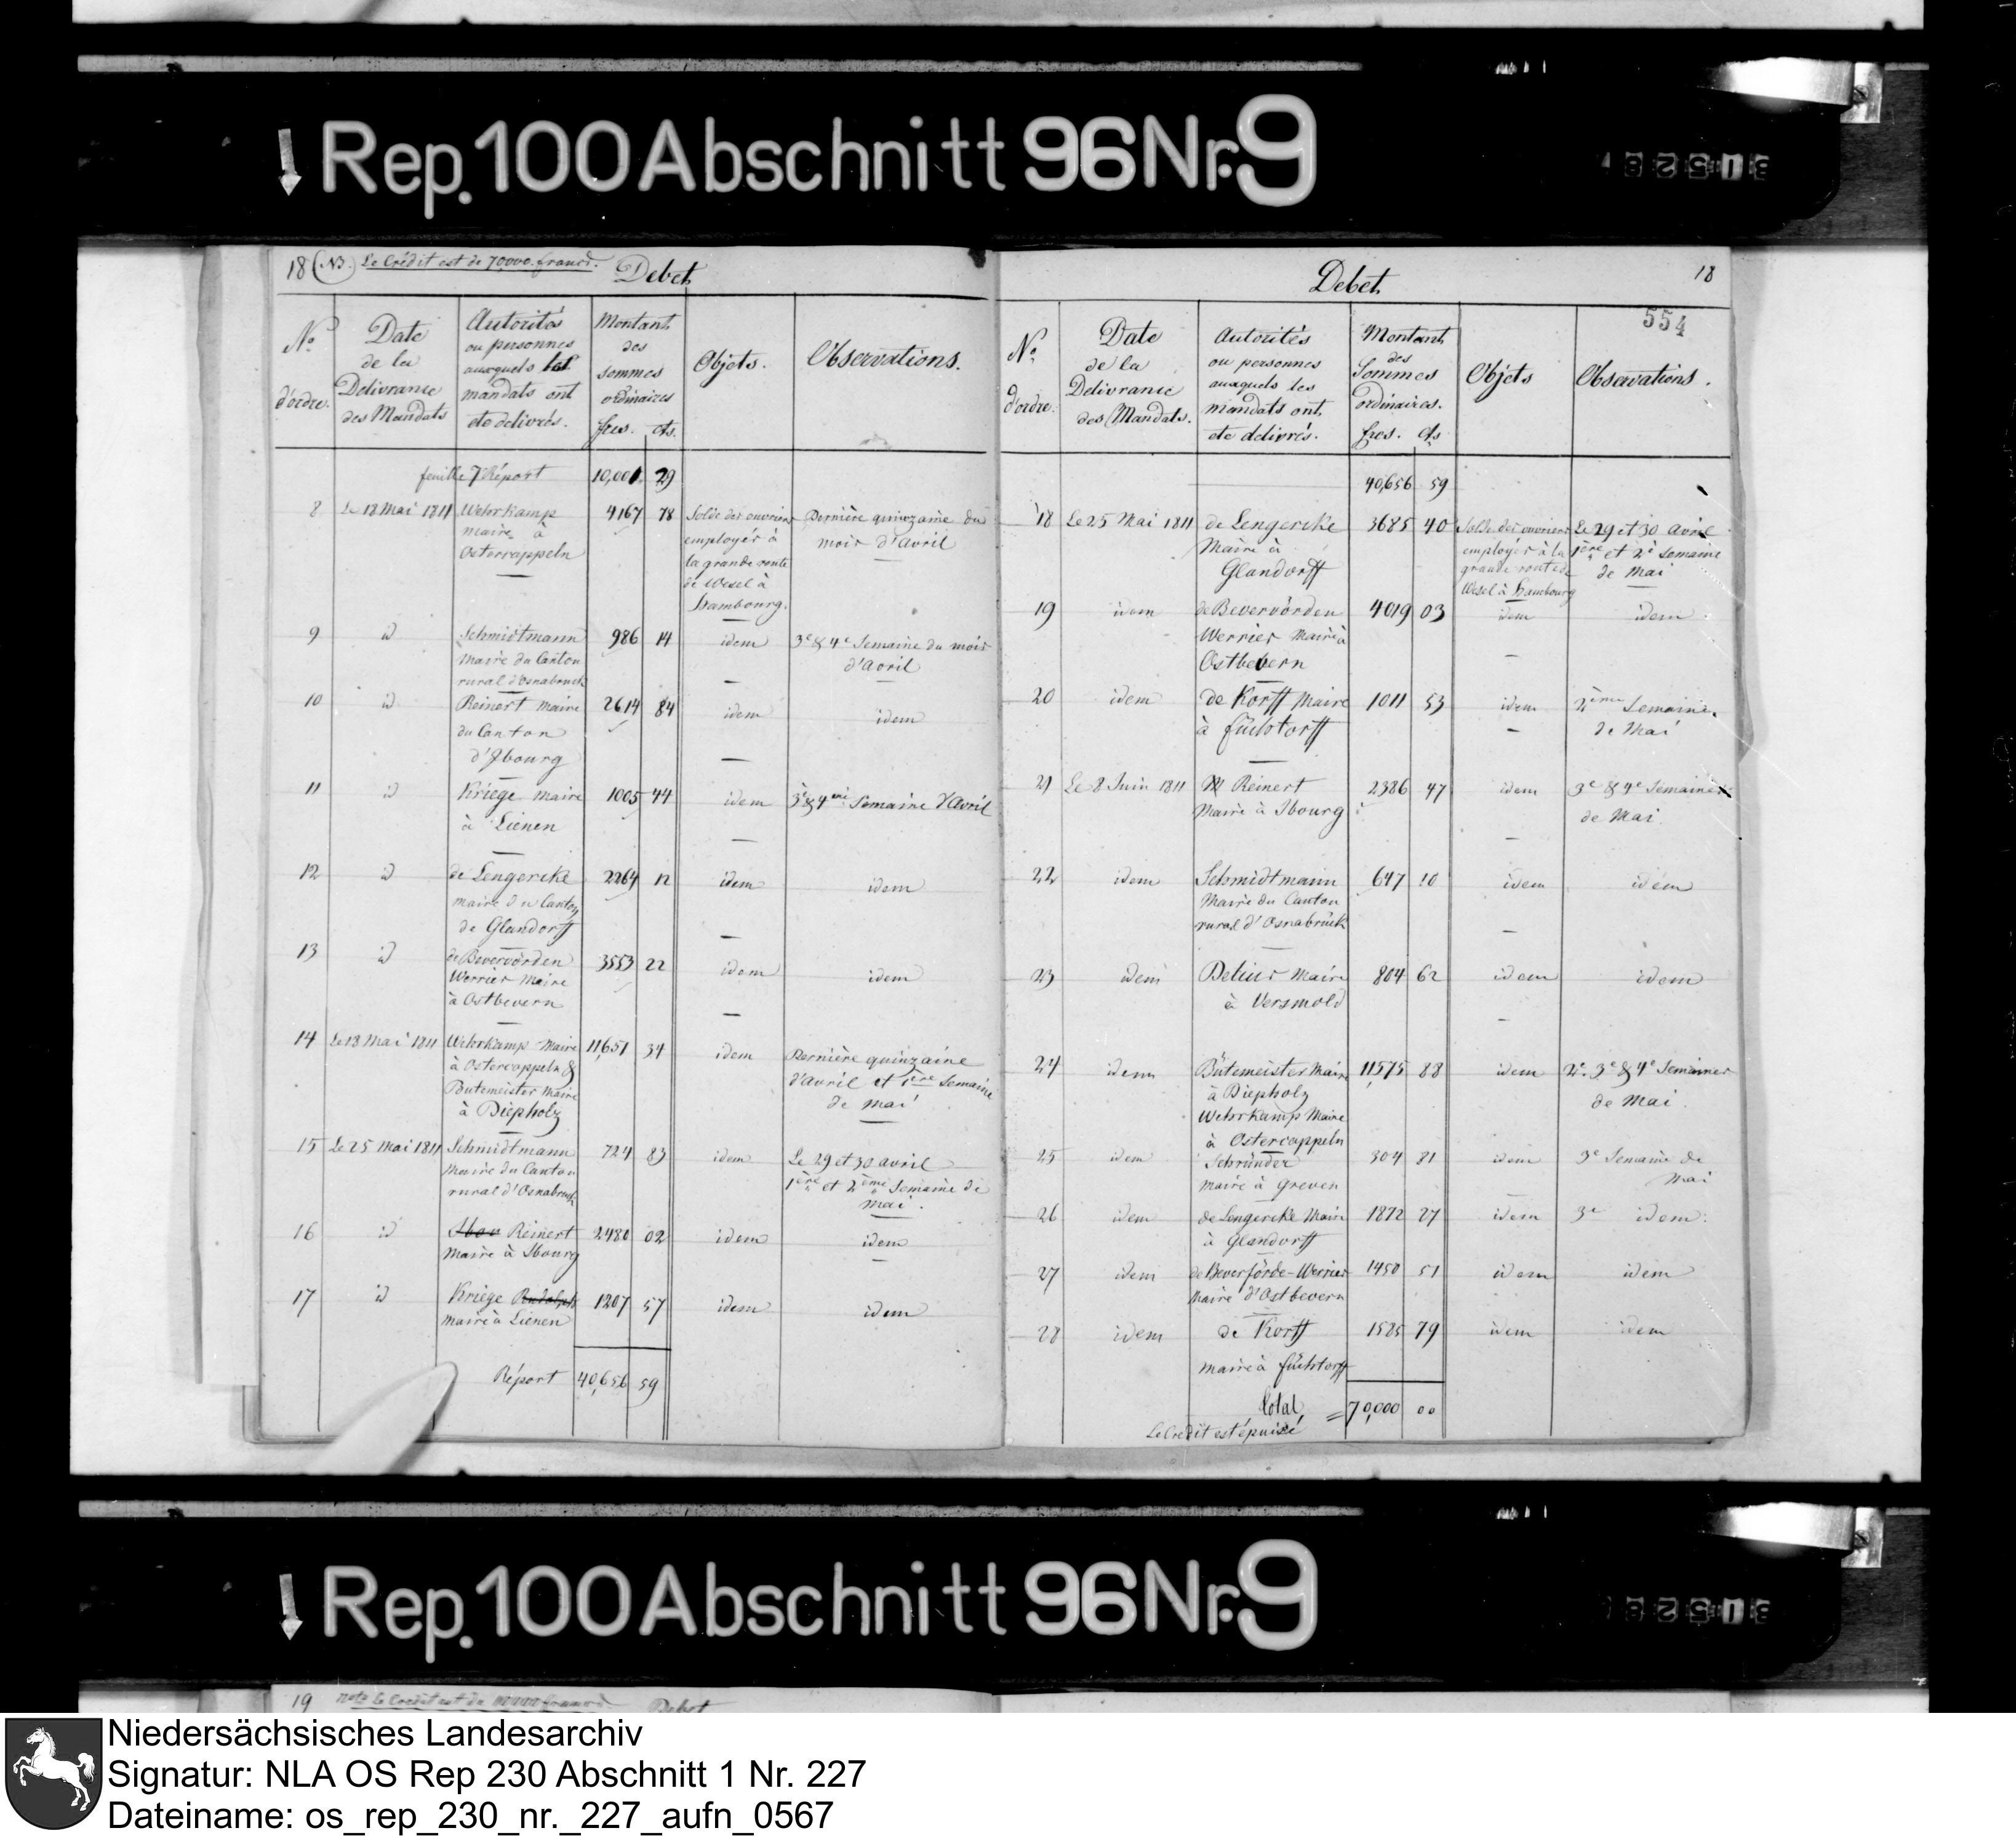 Rep. 100 Abschnitt 96 Nr. 9
31528
18 (NB.) Le Crédit est de 70,000 francs. Debet
No d'ordre. | Date de la Délivrance des Mandats | Autorités ou personnes auxquels les mandats ont été délivrés. | Montant des sommes ordinaires frcs. cts. | Objets. | Observations.
feuille 7 Réport 10,001 29
8 Le 18 Mai 1811 Wehrkamp 4167 78 Solde des ouvriers Dernière quinzaine du
maire à employés à mois d'avril
Ostercappeln la grande route
de Wesel à
Hambourg.
9 id Schmidtmann 986 14 idem 3e & 4e Semaine du mois
Maire du Canton d'avril
rural d'Osnabruck
10 id Reinert Maire 2614 84 idem idem
du Canton
d'Ibourg
11 id Kriege Maire 1005 44 idem 3e & 4eme Semaine d'Avril
à Lienen
12 id de Lengercke 2264 12 idem idem
maire du Canton
de Glandorff
13 id de Bevervörden 3553 22 idem idem
Werries Maire
à Ostbevern
14 Le 18 Mai 1811 Wehrkamp Maire 11,651 34 idem Dernière quinzaine
à Ostercappeln & d'avril et 1ère Semaine
Butemeister Maire de mai
à Diepholz
15 Le 25 Mai 1811 Schmidtmann 724 83 idem Le 29 et 30 avril
Maire du Canton 1ère et 2ème Semaine de
rural d'Osnabruck mai.
16 id Ibou Reinert 2480 02 idem idem
Maire à Ibourg
17 id Kriege Rudolph 1207 57 idem idem
maire à Lienen
Réport 40,656 59
Debet 18
554
No d'ordre. | Date de la Délivrance des Mandats. | Autorités ou personnes auxquels les mandats ont été délivrés. | Montant des Sommes ordinaires. frcs. cts | Objets | Observations.
40,656 59
18 Le 25 Mai 1811 de Lengercke 3685 40 Solde des ouvriers Le 29 et 30 avril
Maire à employés à la 1ère et 2e Semaine
Glandorff grande route de de Mai
Wesel à Hambourg
19 idem de Bevervörden 4019 03 idem idem
Werries Maire à
Ostbevern
20 idem de Korff Maire 1011 53 idem 2ème Semaine
à Füchtorff de Mai
21 Le 8 Juin 1811 M Reinert 2386 47 idem 3e & 4e Semaines
Maire à Ibourg de Mai
22 idem Schmidtmann 647 10 idem idem
Maire du Canton
rural d'Osnabrück
23 idem Delius Maire 804 62 idem idem
à Versmold
24 idem Bütemeister Maire 11,575 88 idem 2e 3e & 4e Semaines
à Diepholz de Mai.
Wehrkamp Maire
à Ostercappeln
25 idem Schründer 304 81 idem 3e Semaine de
Maire à Greven Mai
26 idem de Lengercke Maire 1872 27 idem 3e idem
à Glandorff
27 idem de Beverförde-Werries 1450 51 idem idem
Maire d'Ostbevern
28 idem de Korff 1585 79 idem idem
maire à Füchtorff
Total = 70,000 00
Le Credit est épuisé
Rep. 100 Abschnitt 96 Nr. 9
31528
19 Debet
Niedersächsisches Landesarchiv
Signatur: NLA OS Rep 230 Abschnitt 1 Nr. 227
Dateiname: os_rep_230_nr._227_aufn_0567